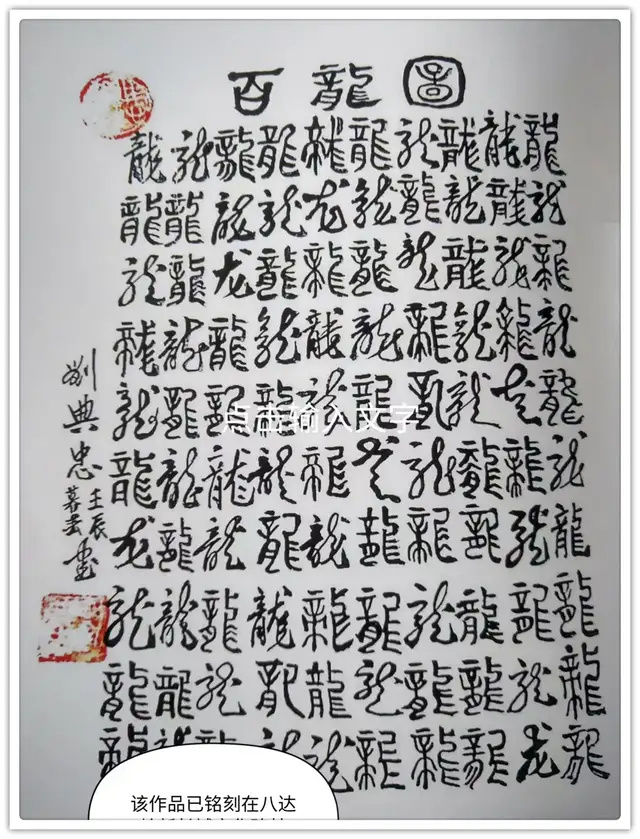 百龍圖
龍龍龍龍龍龍龍龍龍龍
龍龍龍龍龙龍龍龍龍龍
龍龍龙龍龍龍龍龍龍龍
龍龍龍龍龍龍龍龍龍龍
龍龍龍龍龍龍龍龍龙龍
龍龍龍龍龍龙龍龍龍龍
龙龍龍龍龍龍龍龍龍龍
龍龍龍龍龍龍龍龍龍龍
龍龍龍龍龍龍龍龍龍龍
龍龍龍龍龍龍龍龍龙龍
劉典忠
壬辰
書
点击输入文字
该作品已铭刻在八达